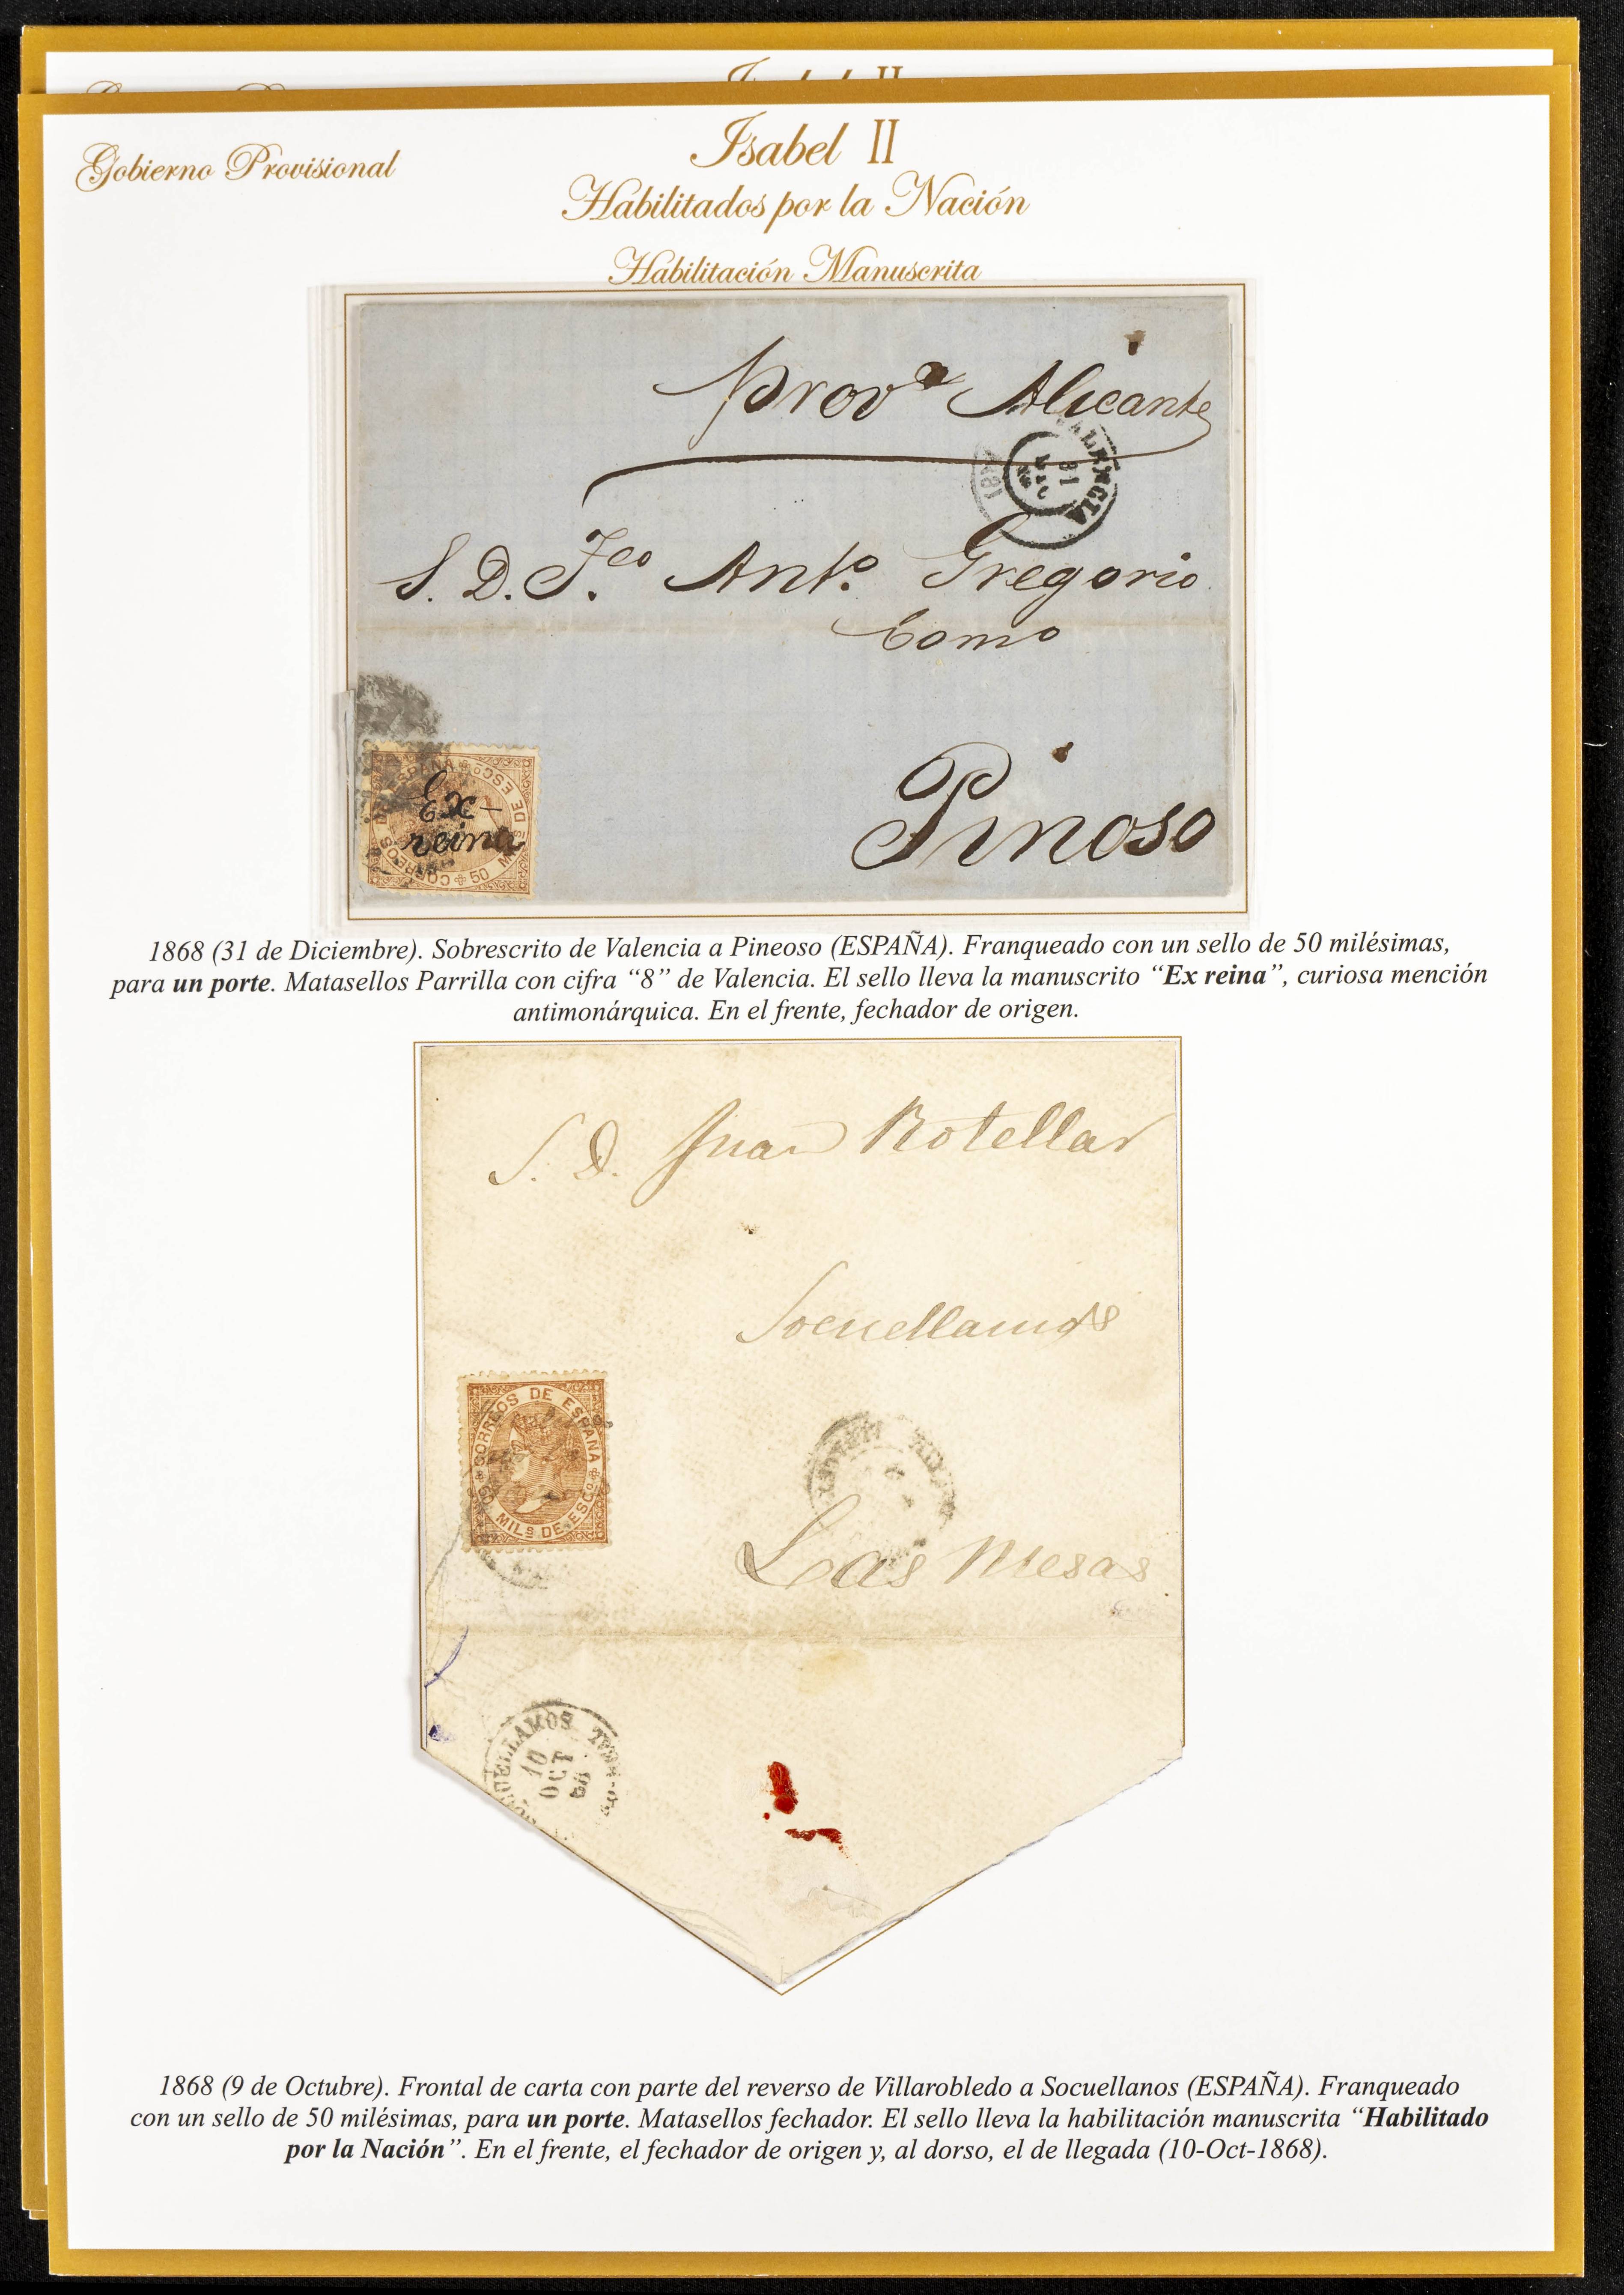 Isabel II
Gobierno Provisional
Isabel II
Habilitados por la Nación
Habilitación Manuscrita
Provª Alicante
VALENCIA
31
DIC
S. D. Fco Antº Gregorio
Pinoso
CORREOS DE ESPAÑA
50 MILS DE ESCO
Ex-
reina
1868 (31 de Diciembre). Sobrescrito de Valencia a Pineoso (ESPAÑA). Franqueado con un sello de 50 milésimas,
para un porte. Matasellos Parrilla con cifra “8” de Valencia. El sello lleva la manuscrito “Ex reina”, curiosa mención
antimonárquica. En el frente, fechador de origen.
S. D. Juan Rotellar
Socuellamos
CORREOS DE ESPAÑA
50 MILS DE ESCO
Las Mesas
SOCUELLAMOS
10
OCT
68
1868 (9 de Octubre). Frontal de carta con parte del reverso de Villarobledo a Socuellanos (ESPAÑA). Franqueado
con un sello de 50 milésimas, para un porte. Matasellos fechador. El sello lleva la habilitación manuscrita “Habilitado
por la Nación”. En el frente, el fechador de origen y, al dorso, el de llegada (10-Oct-1868).